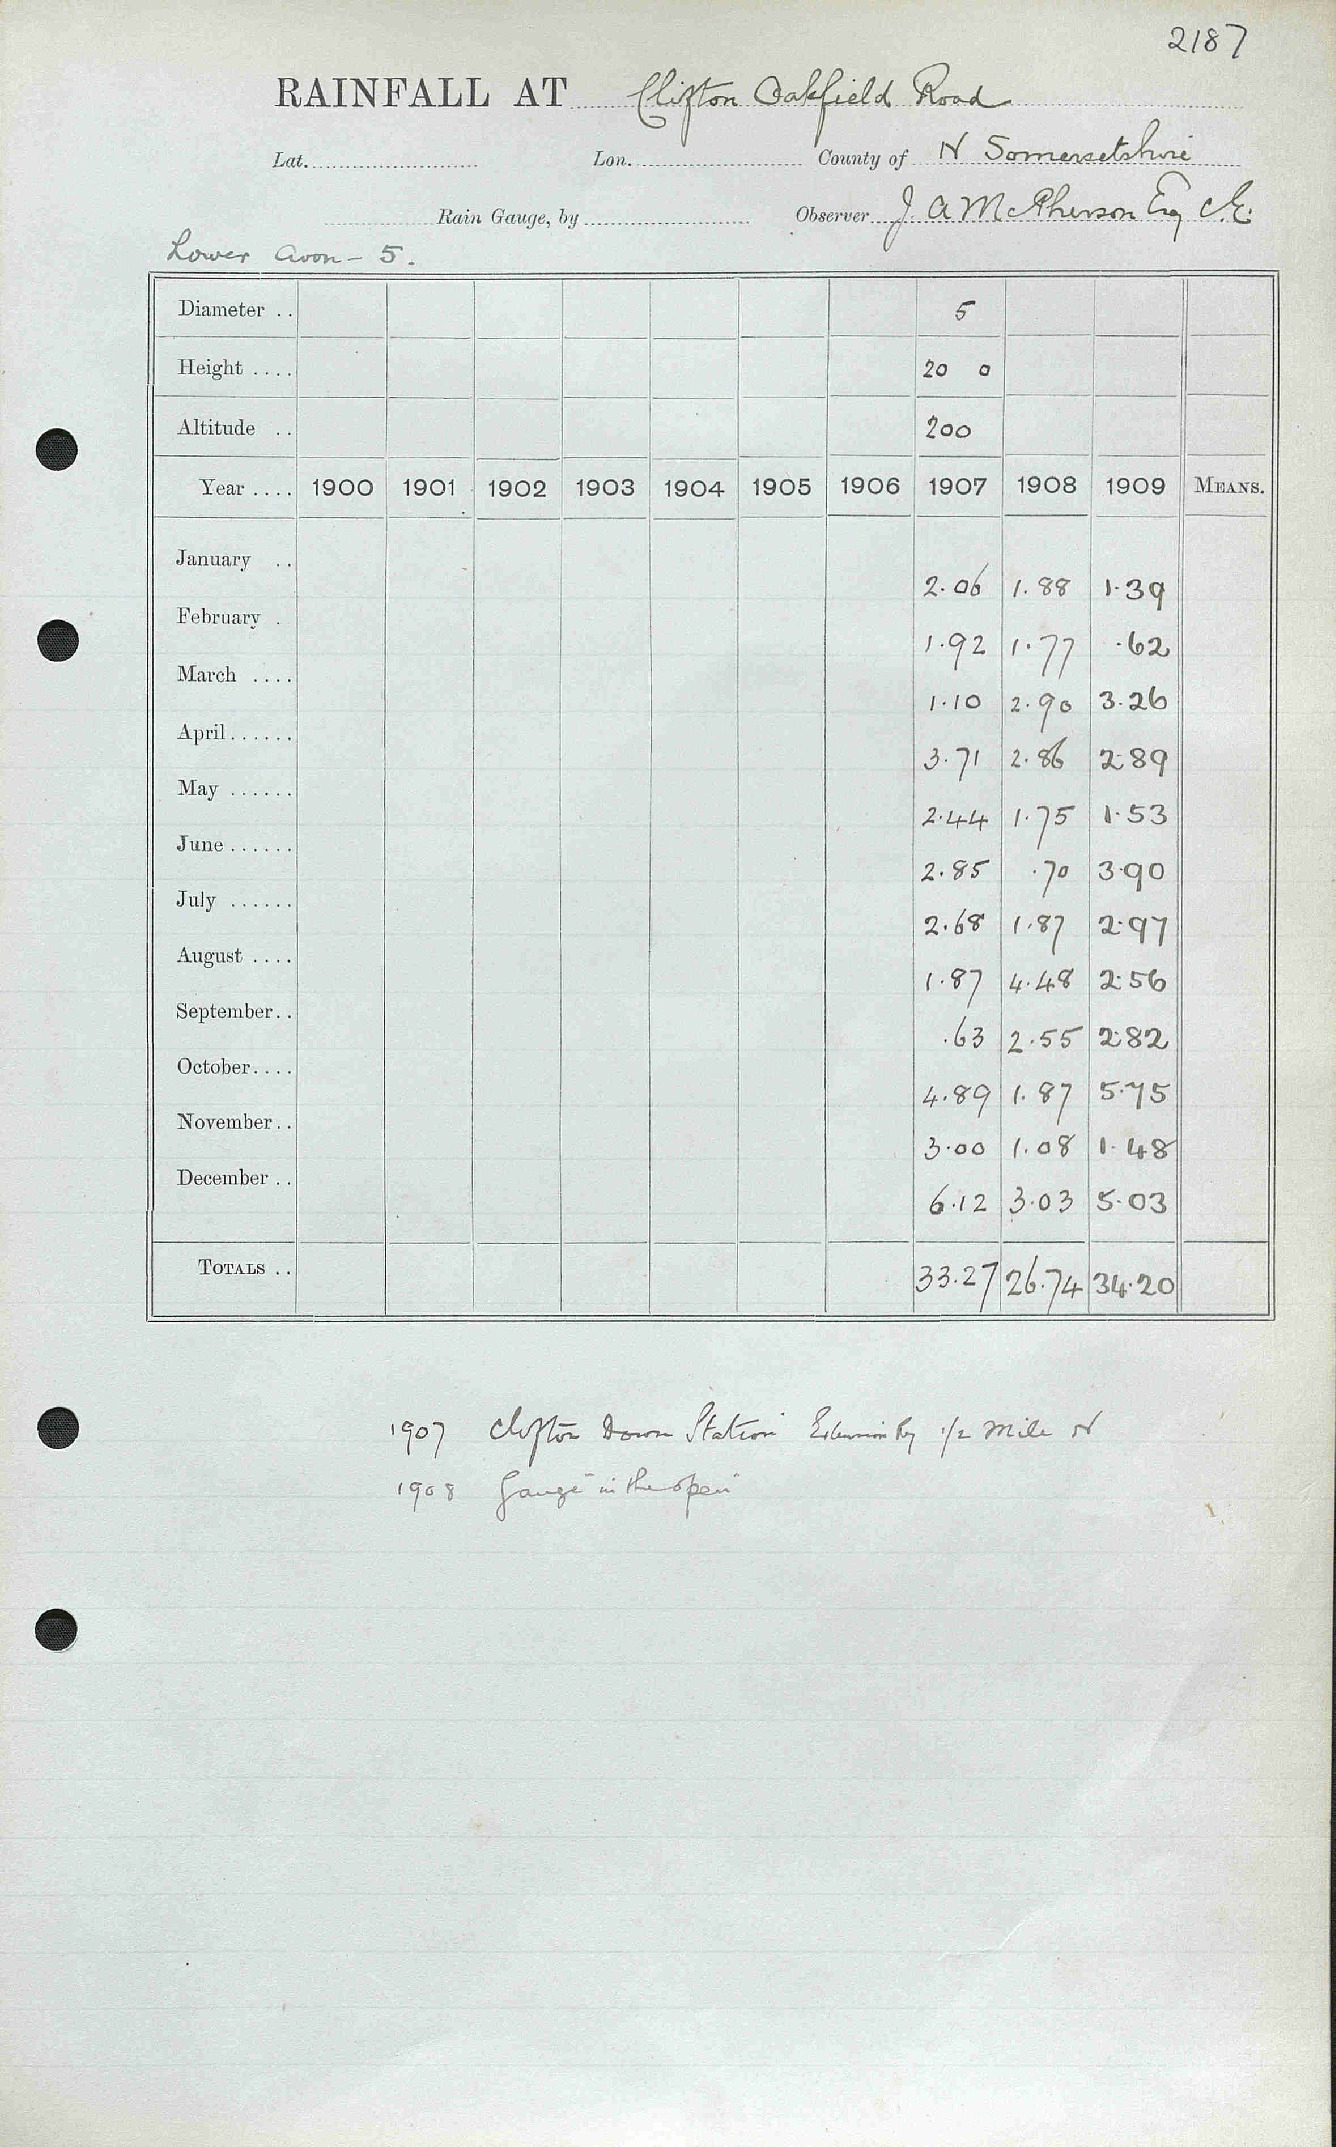 2187
RAINFALL AT Clifton Oakfield Road
Lat. Lon. County of N Somersetshire
Rain Gauge, by Observer J. A McPherson Esq C.E.
Lower Avon - 5.
Diameter .. 5
Height .... 20 0
Altitude .. 200
Year .... 1900 1901 1902 1903 1904 1905 1906 1907 1908 1909 MEANS.
January .. 2.06 1.88 1.39
February . 1.92 1.77 .62
March .... 1.10 2.90 3.26
April...... 3.71 2.86 2.89
May ...... 2.44 1.75 1.53
June ...... 2.85 .70 3.90
July ...... 2.68 1.87 2.97
August .... 1.87 4.48 2.56
September.. .63 2.55 2.82
October.... 4.89 1.87 5.75
November.. 3.00 1.08 1.48
December .. 6.12 3.03 5.03
TOTALS .. 33.27 26.74 34.20
1907 Clifton Down Station 1/2 Mile N
1908 Gauge "in the open"